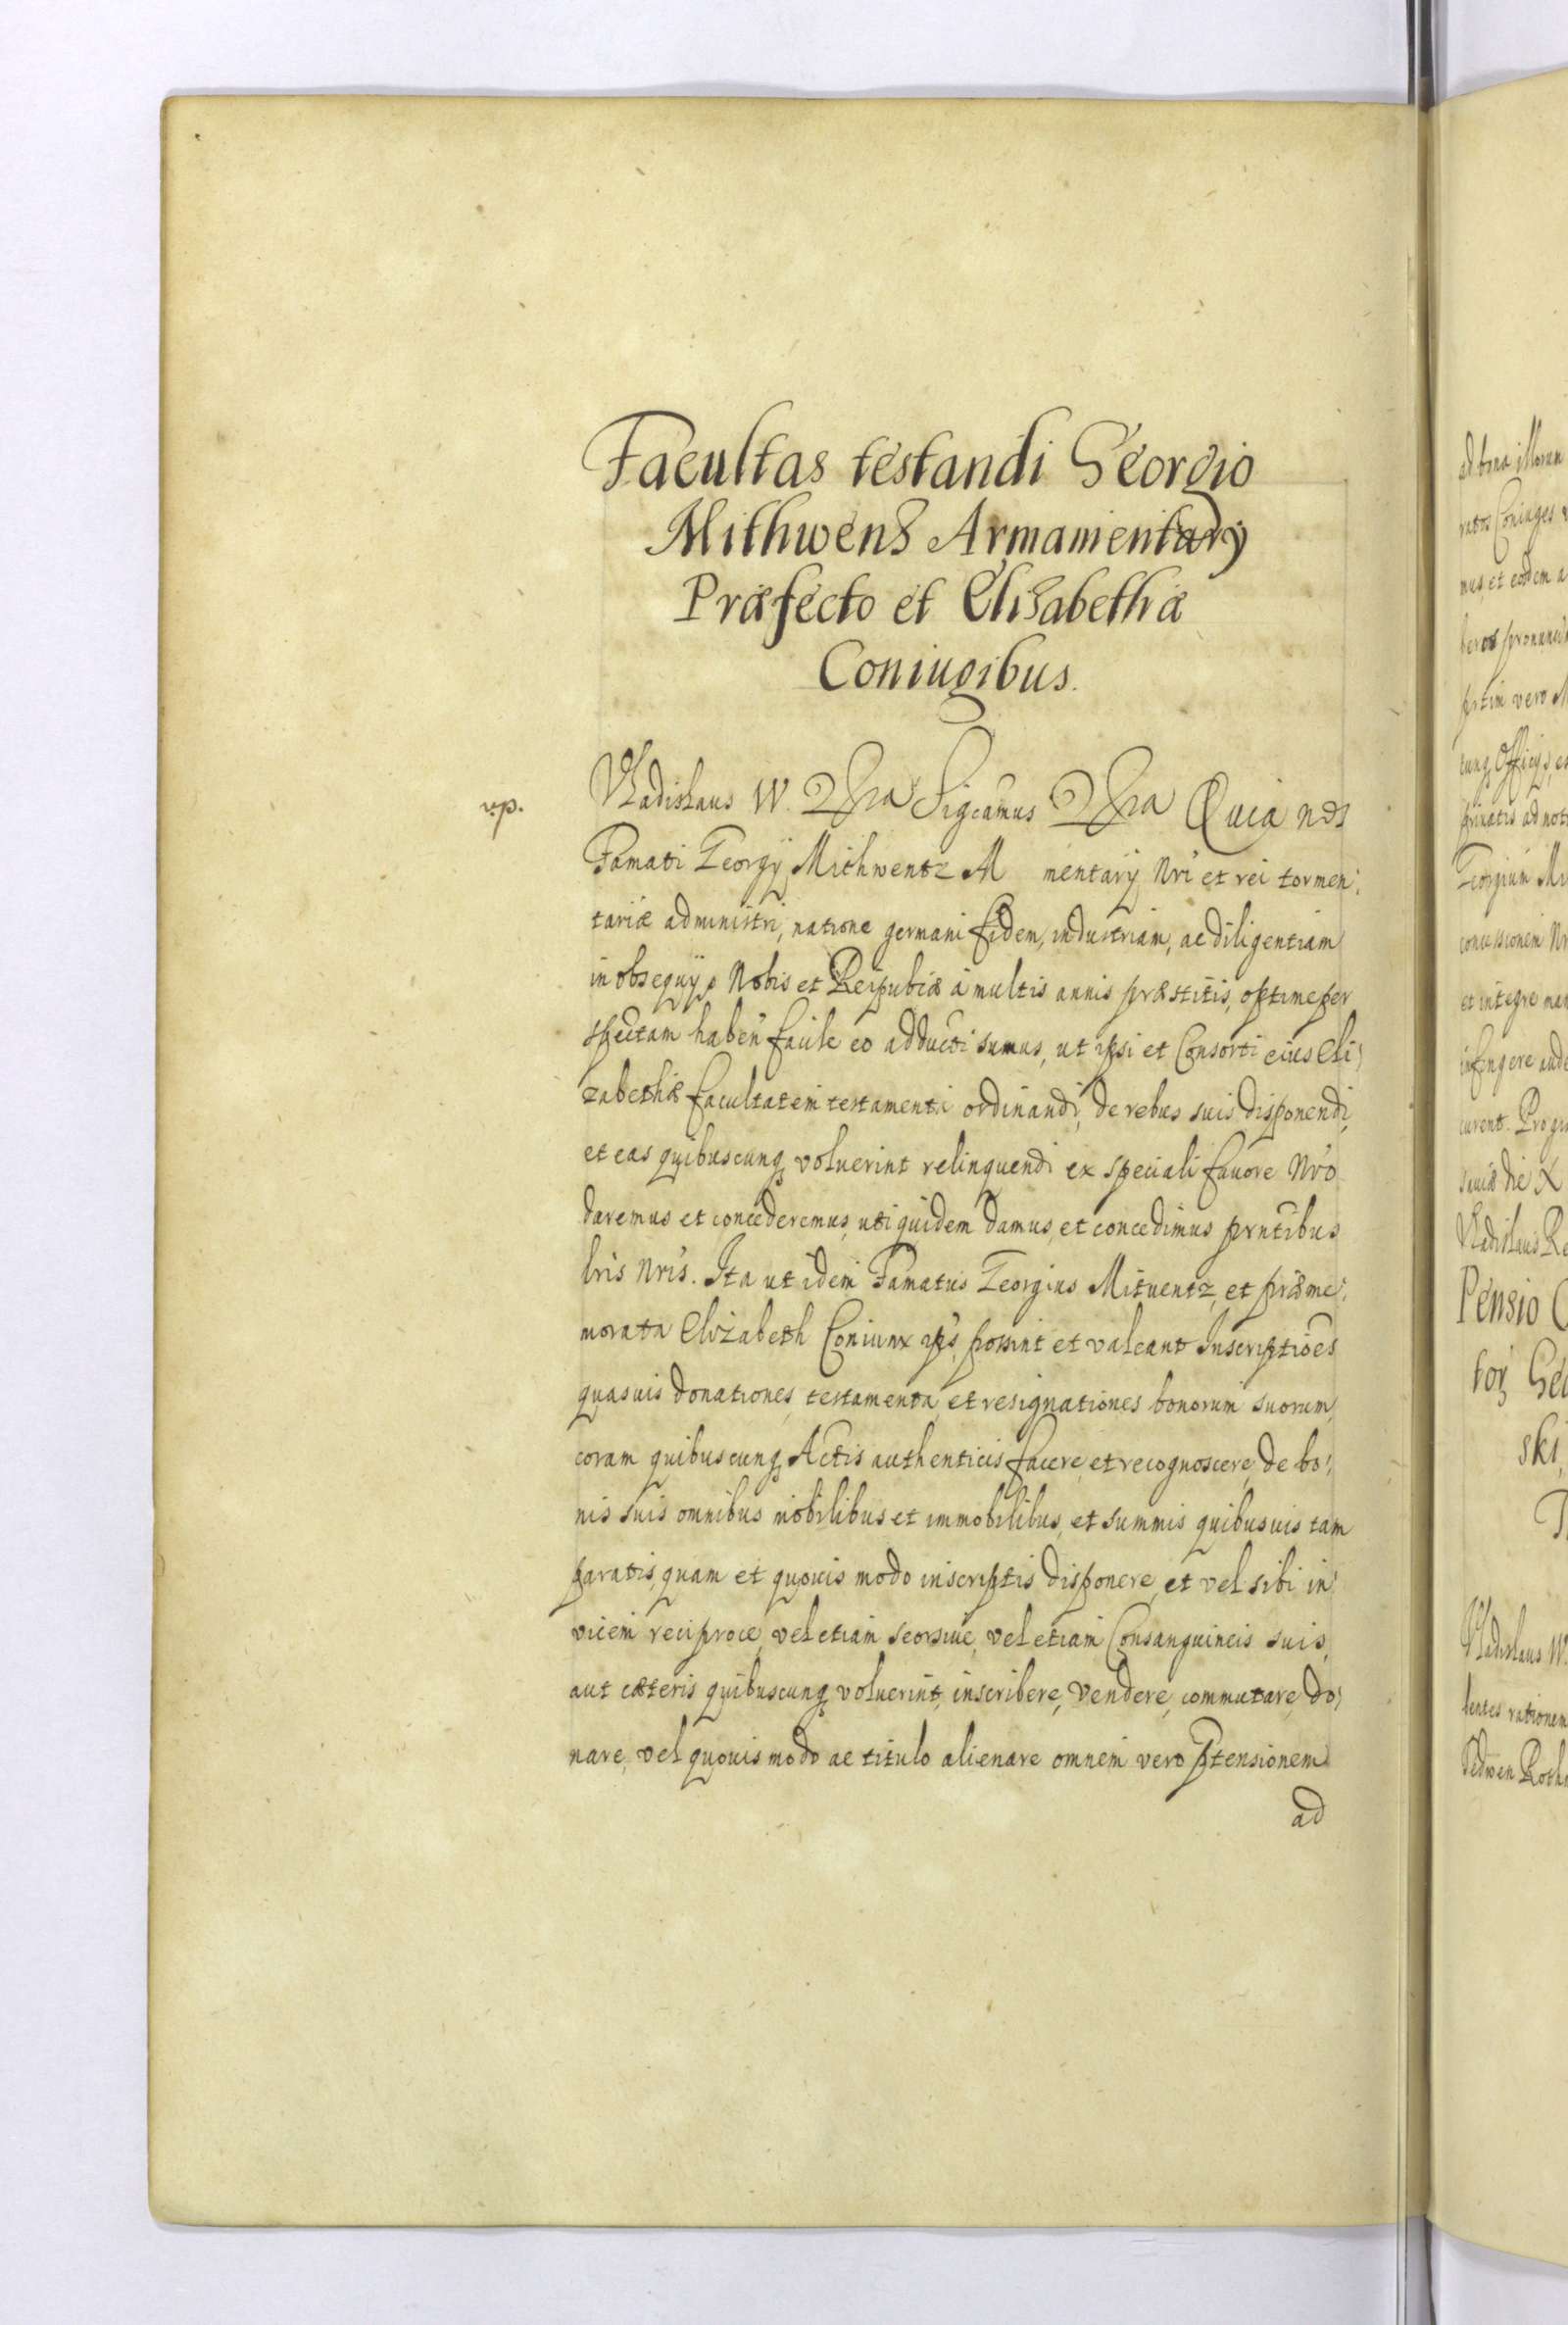 Facultas testandi Georgio
Mithwenz Armamentarÿ
Præfecto et Elizabethæ
Coniugibus.
Vladislaus IV. Sigcamus Quia nos
Famati Georgÿ Mithwentz M mentarÿ Nri et rei tormen:
tariæ administri, natione germani fidem, industriam, ac diligentiam
in obsequÿs Nobis et Reipubcæ à multis annis præstitis, optime per
spectam haben facile eo adducti sumus, ut ipsi et Consorti eius Eli:
zabethæ facultatem testamenti ordinandi, de rebus suis disponendi,
et eas quibuscunq voluerint relinquendi ex speciali favore Nro
daremus et concederemus, uti quidem damus et concedimus prntibus
lris Nris. Ita ut idem Famatus Georgius Mituentz, et præme:
morata Elizabeth Coniunx ips, possint et valeant Inscriptioes
quasuis donationes, testamenta, et resignationes bonorum suorum,
coram quibuscunq Actis authenticis facere, et recognoscere, de bo:
nis suis omnibus mobilibus et immobilibus, et summis quibusuis tam
paratis, quam et quouis modo inscriptis disponere, et vel sibi in
vicem reciproce, vel etiam seorsiue, vel etiam Consanguineis suis,
aut cæteris quibuscunq voluerint, inscribere, vendere, commutare, do:
nare, vel quouis modo ac titulo alienare omnem vero ptensionem
ad
ad bona illorum
mus, et eodem a
ptim vero M
tunq Officÿs, e
priuatis ad noti
Georgium Mi
et integre man
infringere aude
curent. Pro
die X
Vladislaus Re
Pensio
tor Geo
ski,
Vladislaus IV.
rationem